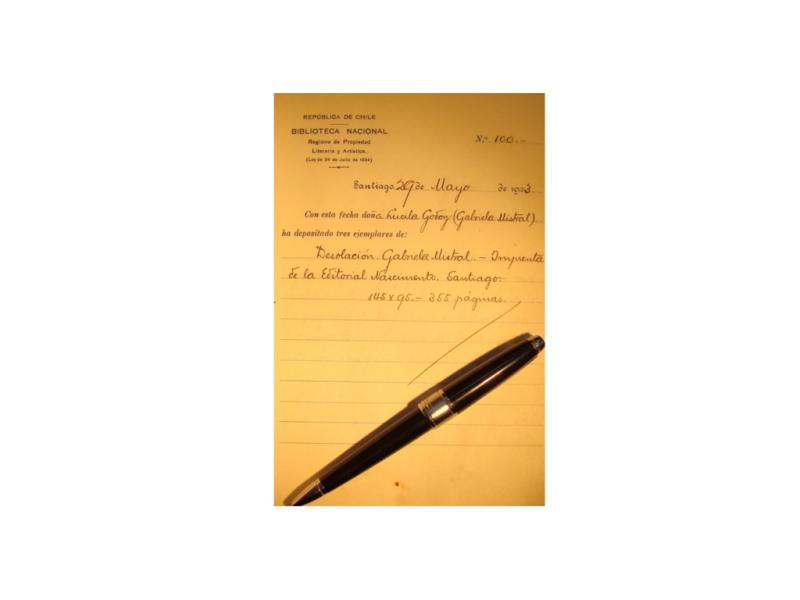 REPÚBLICA DE CHILE
BIBLIOTECA NACIONAL
Registro de Propiedad
Literaria y Artística.
(Ley de 24 de Julio de 1834)
N.º 100.-
Santiago 29 de Mayo de 1923.
Con esta fecha doña Lucila Godoy (Gabriela Mistral)
ha depositado tres ejemplares de:
Desolación. Gabriela Mistral. – Imprenta
de la Editorial Nascimento. Santiago.
145 x 95.– 355 páginas.